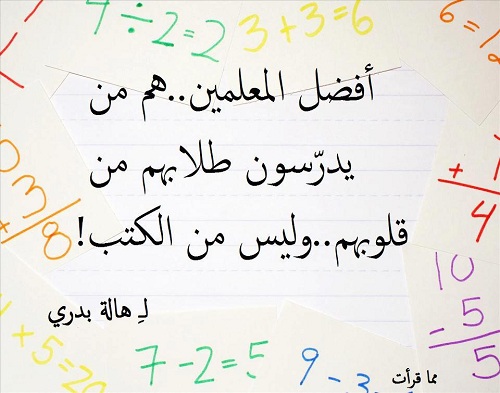 4 ÷ 2 = 2
3 + 3 = 6
أفضل المعلمين..هم من
يدرّسون طلابهم من
قلوبهم..وليس من الكتب!
لـِ هالة بدري
10
- 5
5
7 - 2 = 5
مما قرأت